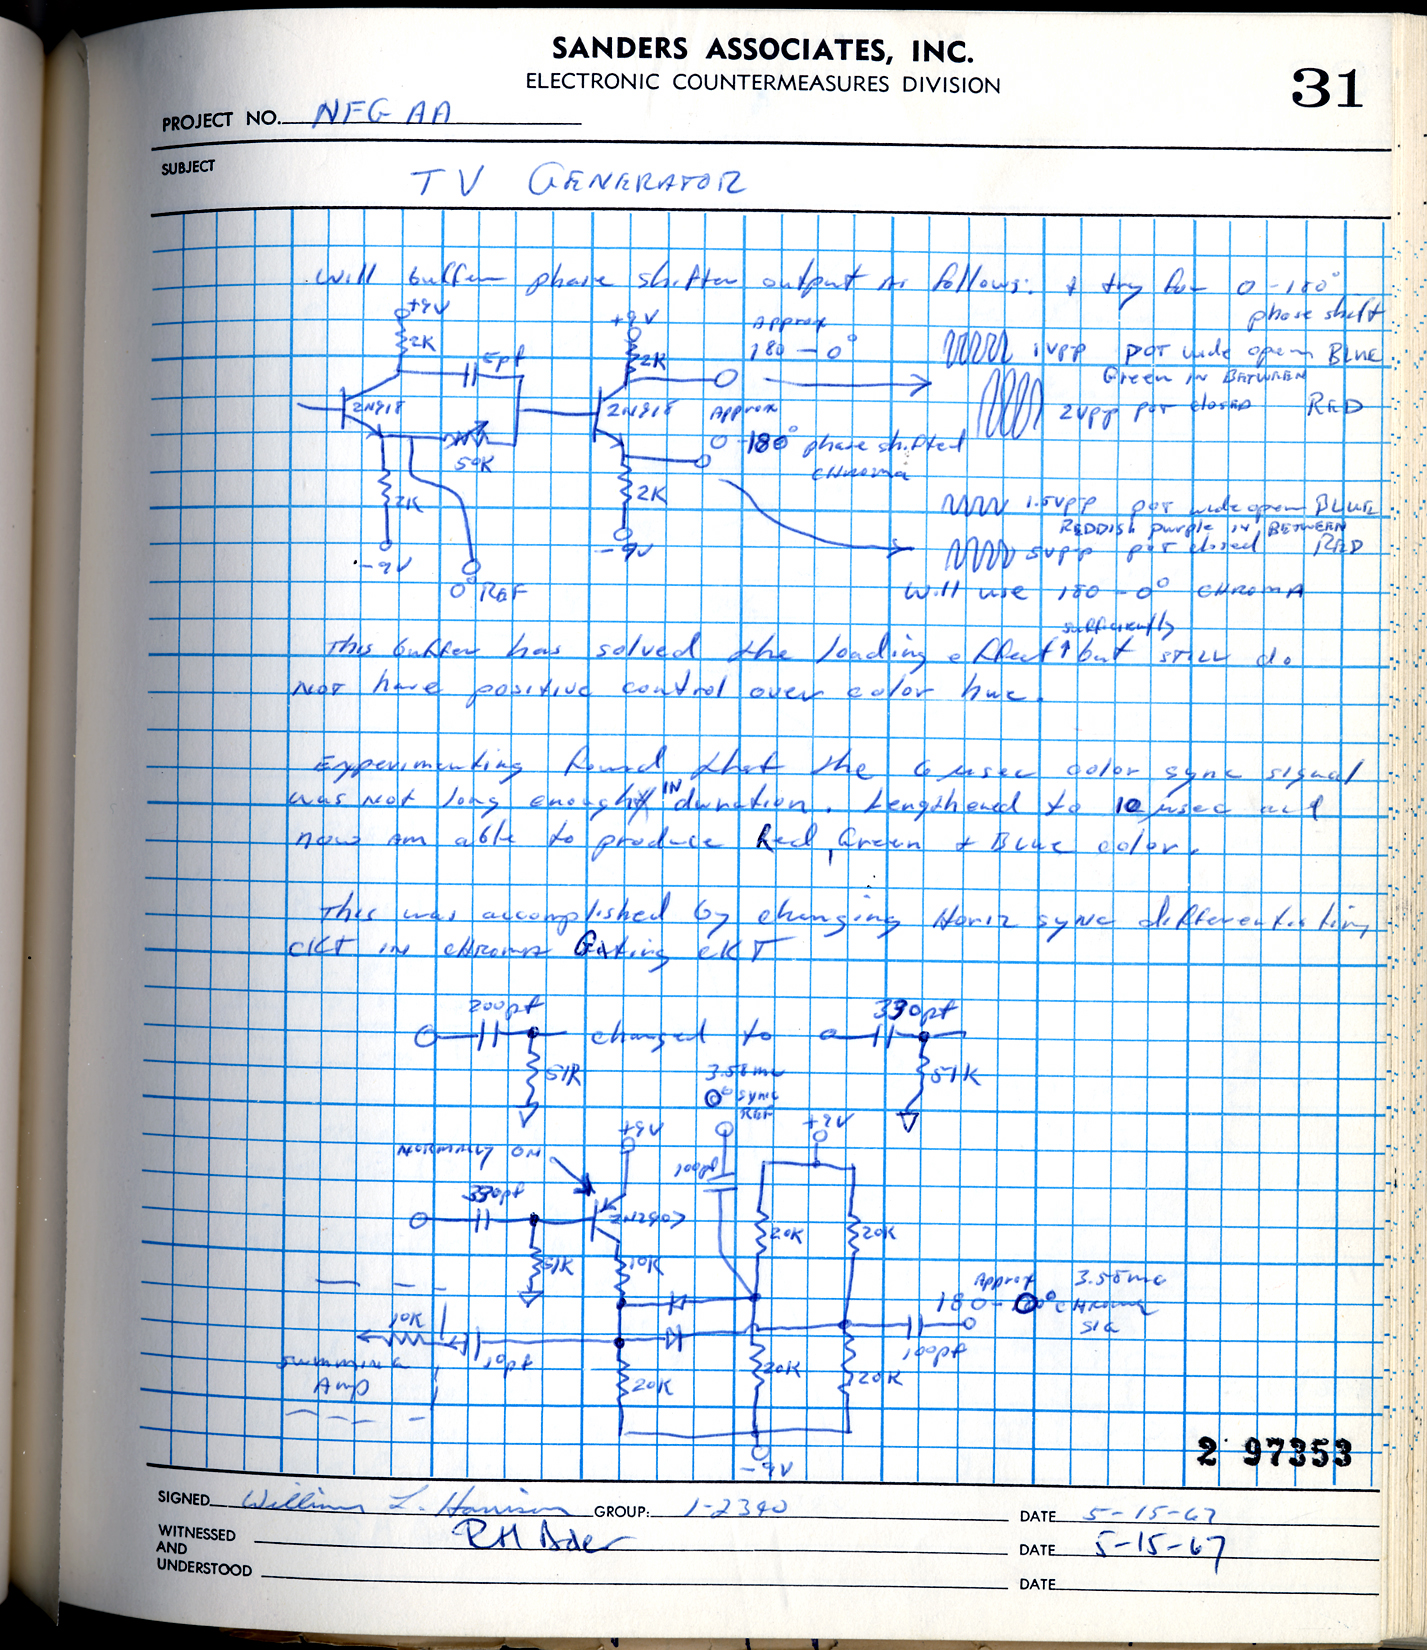 SANDERS ASSOCIATES, INC.
ELECTRONIC COUNTERMEASURES DIVISION
31
PROJECT NO. NFG AA
SUBJECT
TV GENERATOR
Will buffer phase shifter output as follows: & try for 0-180°
phase shift
+9V
2K
5pf
2N918
50K
2K
-9V
0° REF
+9V
2K
2N918
2K
-9V
Approx
180-0°
Approx
0-180° phase shifted
CHROMA
1VPP pot wide open BLUE
Green in BETWEEN
2VPP pot closed RED
1.5VPP pot wide open BLUE
REDDISH purple in BETWEEN
5VPP pot closed RED
Will use 180-0° CHROMA
sufficiently
This buffer has solved the loading effect ↑ but STILL do
NOT have positive control over color hue.
Experimenting found that the 6 μsec color sync signal
was not long enough IN duration. Lengthened to 10 μsec and
now am able to produce Red, Green & Blue color.
This was accomplished by changing Horiz sync differentiating
CKT IN CHROMA Gating CKT
200pf
51K
changed to
330pf
51K
3.58mc
0° sync
REF
NORMALLY ON
+9V
100pf
+9V
330pf
2N2907
51K
10K
20K
20K
Approx
180-0° CHROMA
3.58mc
SIG
10K
10pf
100pf
Summing
Amp
20K
20K
20K
-9V
2 97353
SIGNED William L. Harrison GROUP: 1-2340 DATE 5-15-67
WITNESSED
AND
UNDERSTOOD
DATE 5-15-67
DATE